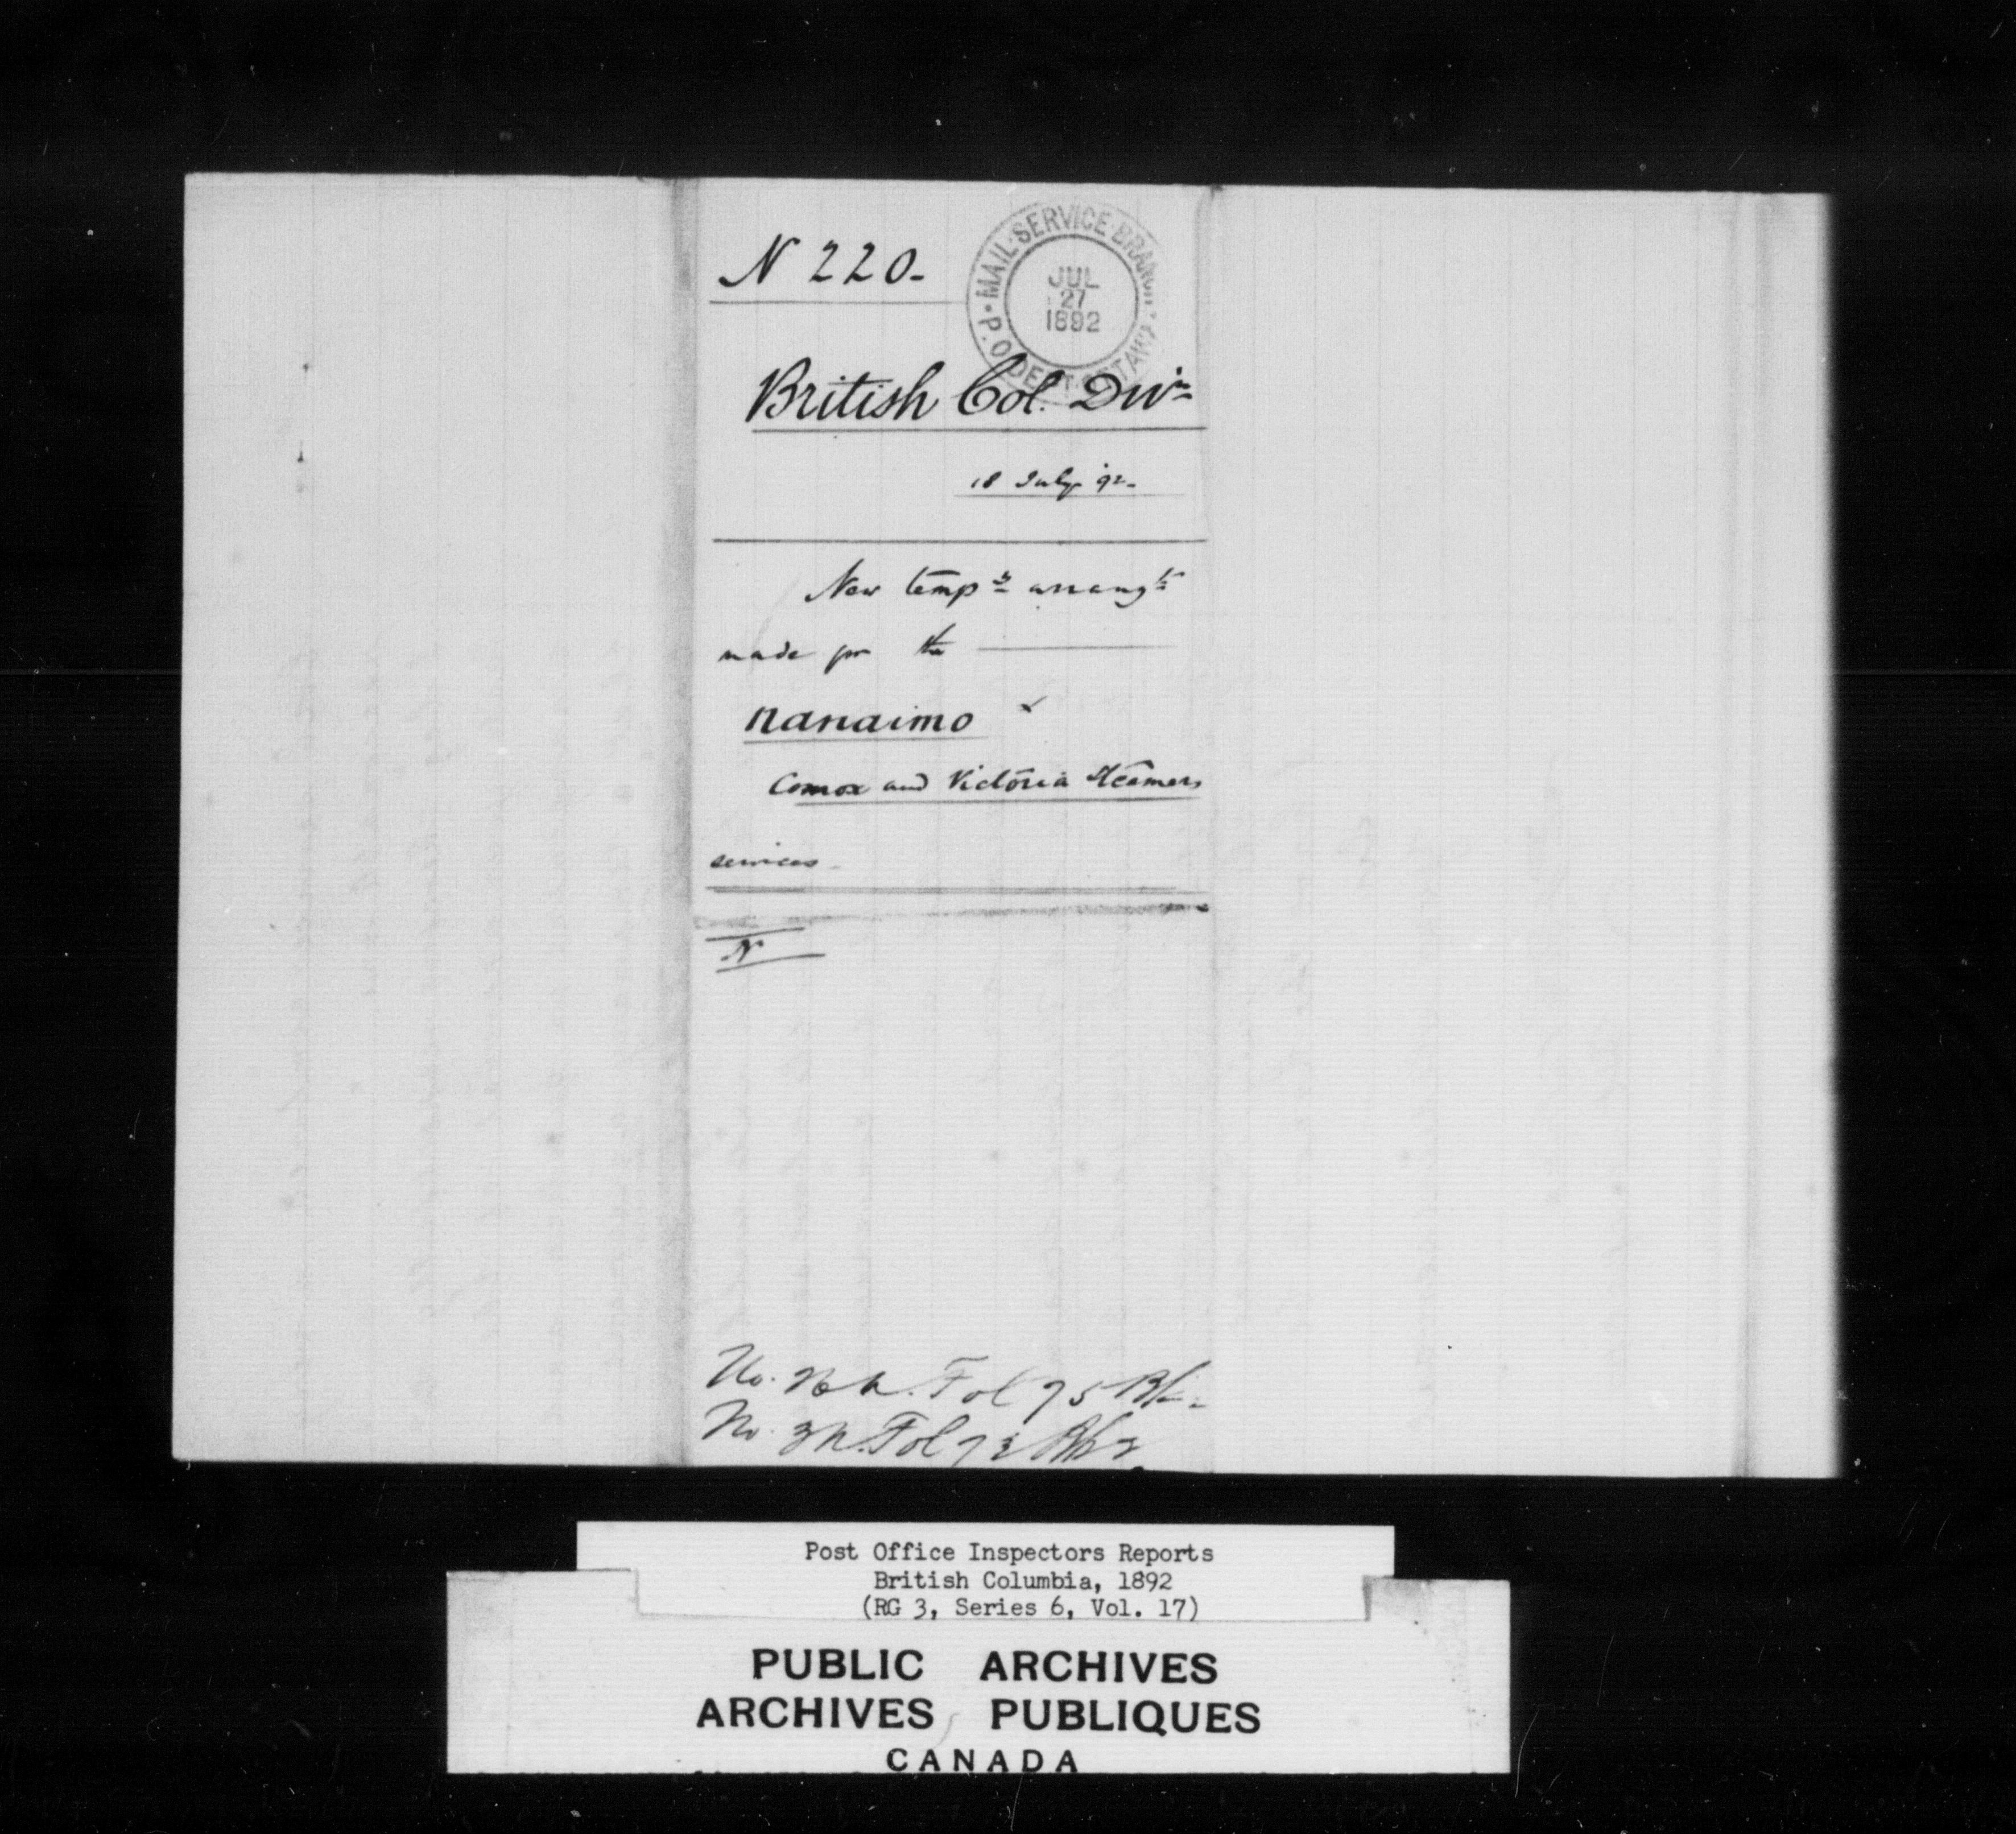 N 220-
MAIL·SERVICE·BRANCH
P.O. DEPT. OTTAWA
JUL
27
1892
British Col. Divn
18 July 92-
New tempy arrangts
made for the
Nanaimo
Comox and Victoria Steamers
services-
N
No. Fol 75
No. 3N. Fol 73
Post Office Inspectors Reports
British Columbia, 1892
(RG 3, Series 6, Vol. 17)
PUBLIC ARCHIVES
ARCHIVES PUBLIQUES
CANADA